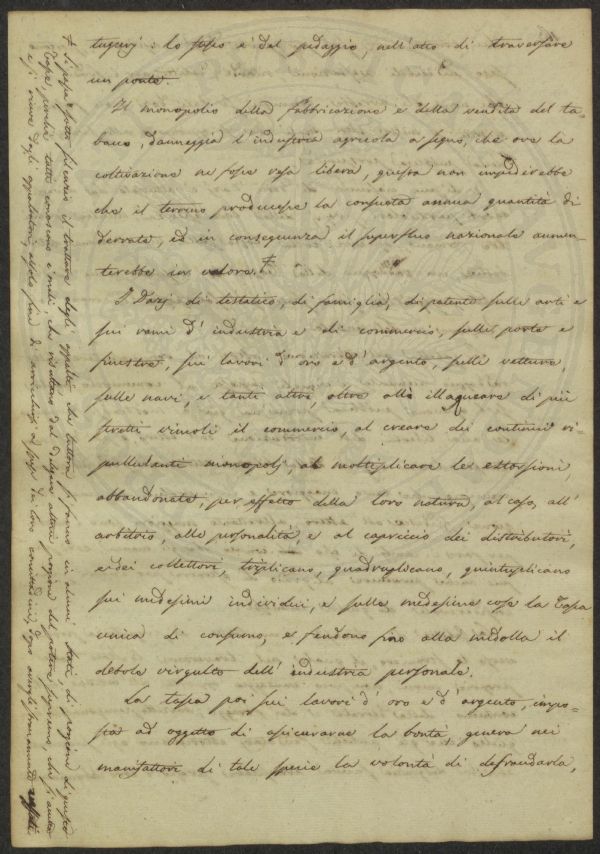 tuguerj: lo stesso è del pedaggio, nell'atto di traversare
un ponte.
Il monopolio della fabbricazione e della vendita del ta-
bacco, danneggia l'industria agricola a segno, che ove la
coltivazione ne fosse resa libera, questa non impedirebbe
che il terreno producesse la consueta annua quantità di
derrate, ed in conseguenza il superfluo nazionale aumen-
terebbe in valore.
I Dazj di testatico, di famiglia, di patente sulle arti e
sui rami d'industria e di commercio, sulle porte e
finestre, sui lavori d'oro e d'argento, sulle vetture,
sulle navi, e tanti altri, oltre allo illaqueare di più
stretti vincoli il commercio, al creare dei continui ri-
pullulanti monopolj, al moltiplicare le estorsioni,
abbandonate, per effetto della loro natura, al caso, all'
arbitrio, alle personalità, e al capriccio dei distributori,
e dei collettori, triplicano, quadruplicano, quintuplicano
sui medesimi individui, e sulle medesime cose la Tassa
unica di consumo, e fendono fino alla midolla il
debole virgulto dell'industria personale.
La tassa poi sui lavori d'oro e d'argento, impo-
sta ad oggetto di assicurarne la bontà, genera nei
manifattori di tale specie la volontà di defraudarla,
Si passa sotto silenzio il trattare degli appalti che tuttora si fanno in alcuni Stati di
Tasse, perché tutti conoscono i mali, che risultano dal delegare altrui porzione del potere supremo, che
e si riceve dagli appaltatori, a solo fine di arricchirsi a spese de' loro concittadini, dopo